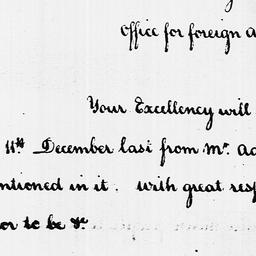 Office for foreign a
Your Excellency will
11th December last from Mr. Ad
ntioned in it. With great resp
or to be &c.